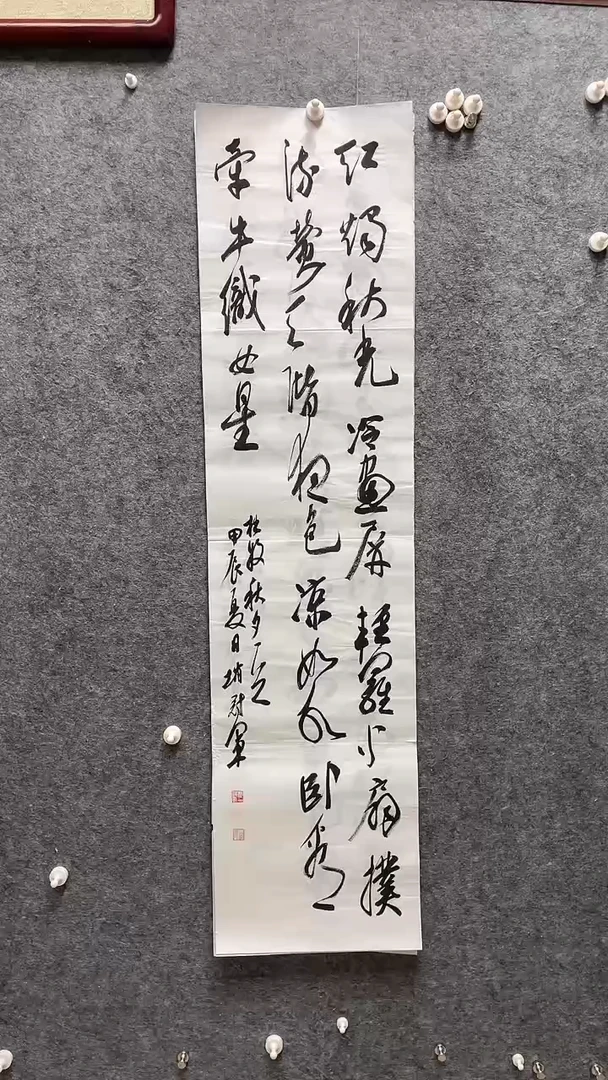 红烛秋光冷画屏轻罗小扇扑
流萤天阶夜色凉如水卧看
牵牛织女星
杜牧秋夕一首
甲辰夏日